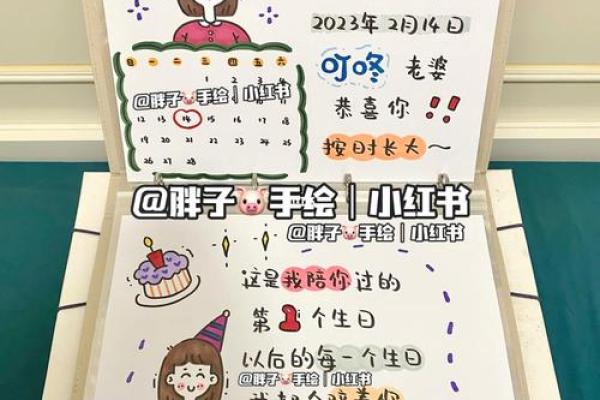 2023年2月14日
叮咚 老婆
恭喜你 !!
按时长大~
日 一 二 三 四 五 六
1
@胖子🐷手绘｜小红书
12 13 14 15 16 17 18
19 20 21 22 23 24 25
26 27 28
@胖子🐷手绘｜小红书
@胖子🐷手绘｜小红书
这是我陪你过的
第1个生日
以后的每一个生日
@胖子🐷手绘｜小红书